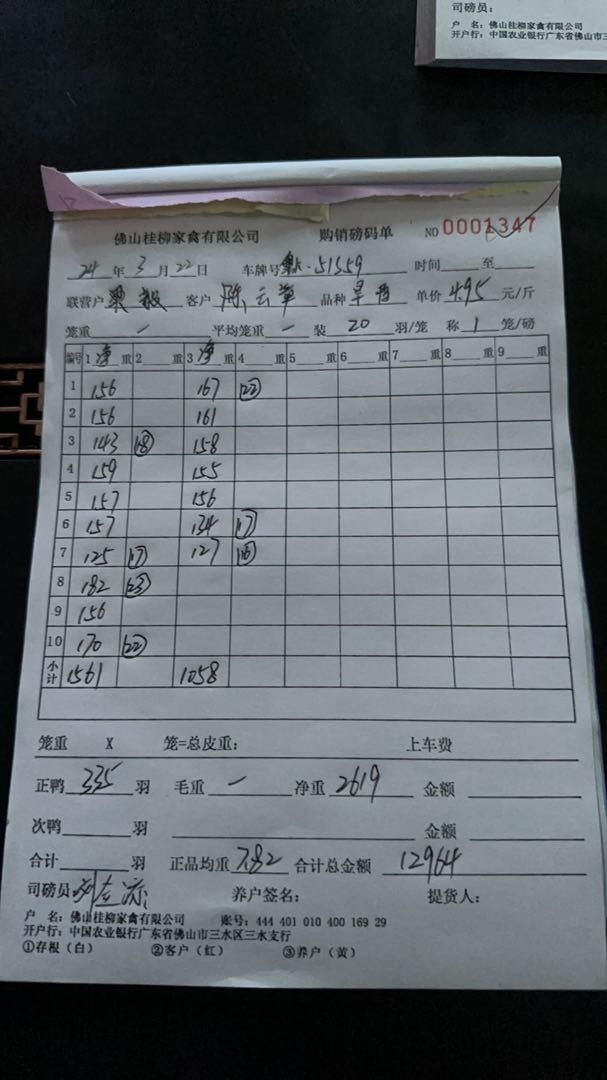 司磅员:
户 名: 佛山桂柳家禽有限公司
开户行: 中国农业银行广东省佛山市三
佛山桂柳家禽有限公司 购销磅码单 NO 0001347
24 年 3 月 22 日 车牌号 51559 时间 至
联营户 客户 陈云华 品种 单价 4.95 元/斤
笼重 — 平均笼重 — 装 20 羽/笼 称 1 笼/磅
编号 1 净 重 2 重 3 净 重 4 重 5 重 6 重 7 重 8 重 9 重
1 156 167 22
2 156 161
3 143 18 158
4 159 155
5 157 156
6 157 134 17
7 125 17 127 16
8 182 23
9 156
10 170 22
小计 1561 1058
笼重 X 笼=总皮重: 上车费
正鸭 335 羽 毛重 — 净重 2619 金额
次鸭 羽 金额
合计 羽 正品均重 7.82 合计总金额 12964
司磅员 养户签名: 提货人:
户 名: 佛山桂柳家禽有限公司 账号: 444 401 010 400 169 29
开户行: 中国农业银行广东省佛山市三水区三水支行
①存根(白) ②客户(红) ③养户(黄)